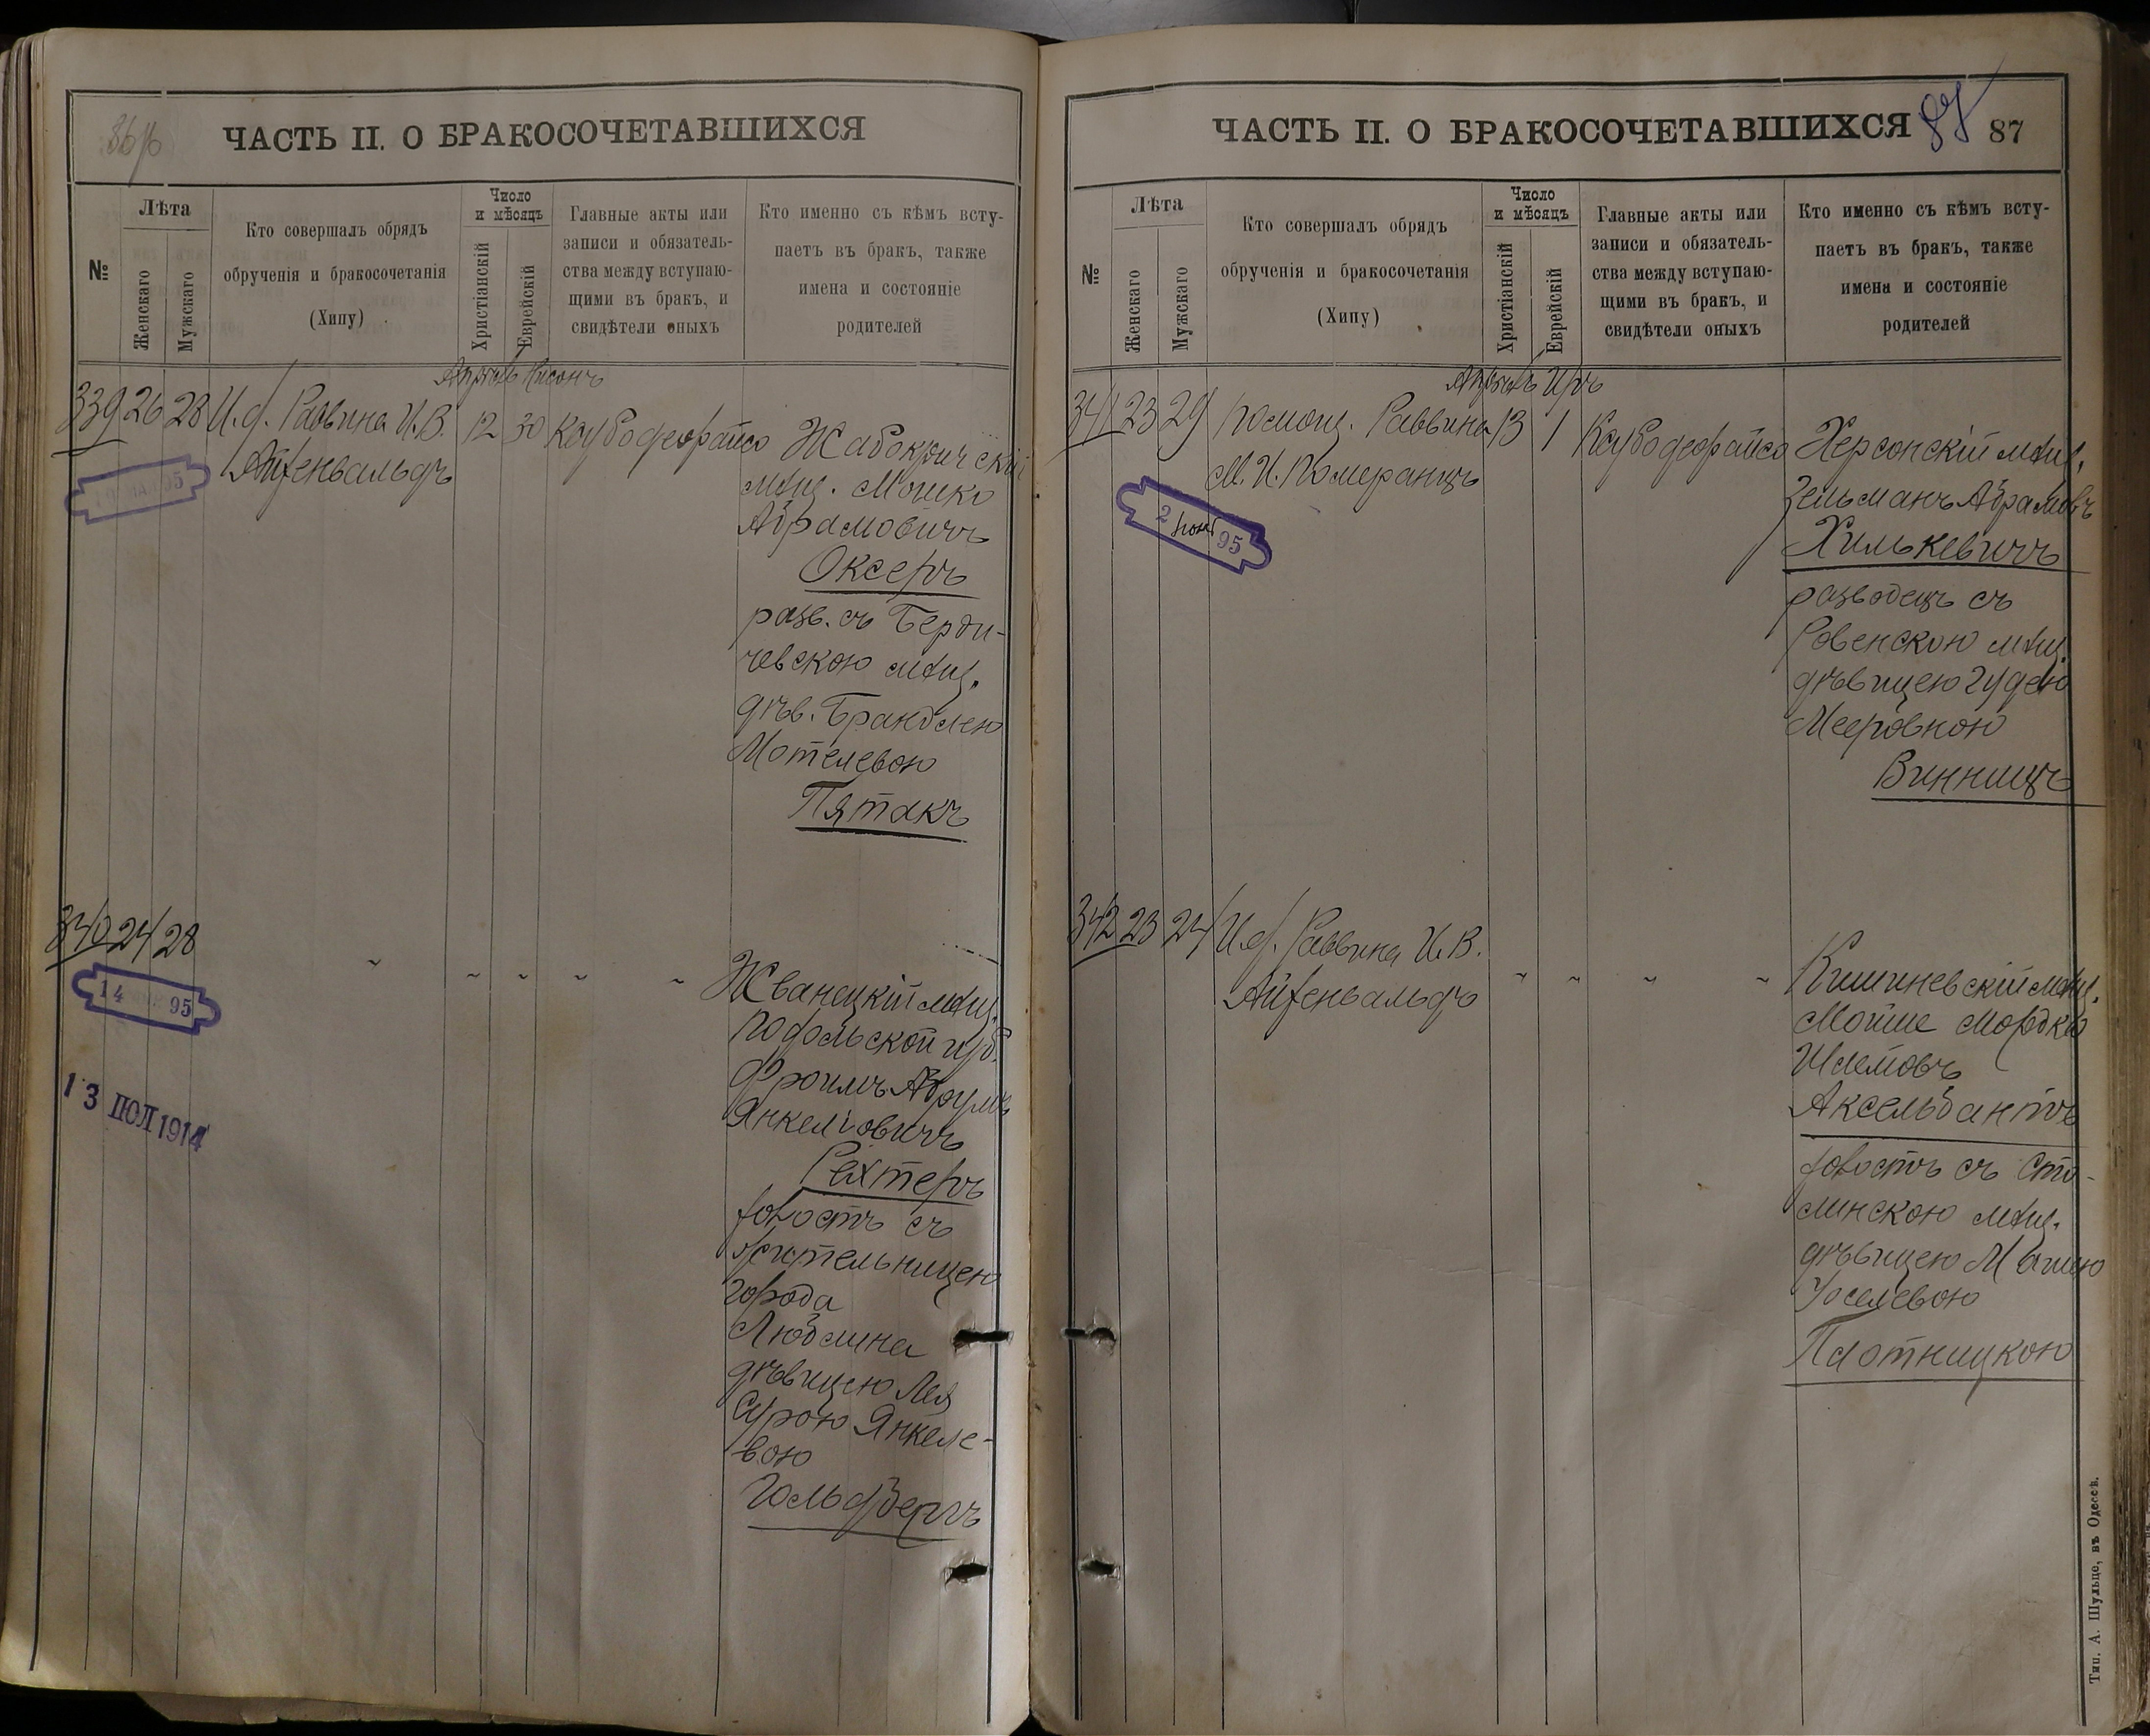 ЧАСТЬ II. О БРАКОСОЧЕТАВШИХСЯ
№
Лѣта
Женскаго
Мужскаго
Кто совершалъ обрядъ
обрученія и бракосочетанія
(Хипу)
Число
и мѣсяцъ
Христіанскій
Еврейскій
Главные акты или
записи и обязатель-
ства между вступаю-
щими въ бракъ, и
свидѣтели оныхъ
Кто именно съ кѣмъ всту-
паетъ въ бракъ, также
имена и состояніе
родителей
Апрѣль Нисонъ
339 26 28 И. д. Раввина И. В. 12 30
Айзенвальдъ
95
Жабокричскій
мѣщ. Мошко
Абрамовичъ
Оксеръ
разв. съ Берди-
чевскою мѣщ.
дѣв. Брандлею
Мотелевою
Пятакъ
340 24 28
14 95
13 ІЮЛ 1914
Жванецкій мѣщ.
Подольской губ.
Фроимъ Абрумъ
Янкеліовичъ
Рехтеръ
холостъ съ
жительницею
города
Люблина
дѣвицею Лея
Сурою Янкеле-
вою
Гольдбергъ
ЧАСТЬ II. О БРАКОСОЧЕТАВШИХСЯ
87
87
№
Лѣта
Женскаго
Мужскаго
Кто совершалъ обрядъ
обрученія и бракосочетанія
(Хипу)
Число
и мѣсяцъ
Христіанскій
Еврейскій
Главные акты или
записи и обязатель-
ства между вступаю-
щими въ бракъ, и
свидѣтели оныхъ
Кто именно съ кѣмъ всту-
паетъ въ бракъ, также
имена и состояніе
родителей
Апрѣль Иръ
341 23 29 Помощ. Раввина 13 1
М. И. Померанцъ
2 95
Херсонскій мѣщ.
Зельманъ Абрамовъ
Хилькевичъ
разводецъ съ
Ровенскою мѣщ.
дѣвицею Гудею
Мееровною
Винницъ
342 23 24 И. д. Раввина И. В.
Айзенвальдъ
Кишиневскій мѣщ.
Мойше Мордко
Шлемовъ
Аксельбантъ
холостъ съ Сто-
линскою мѣщ.
дѣвицею Машею
Іоселевою
Плотницкою
Тип. А. Шульце, въ Одессѣ.